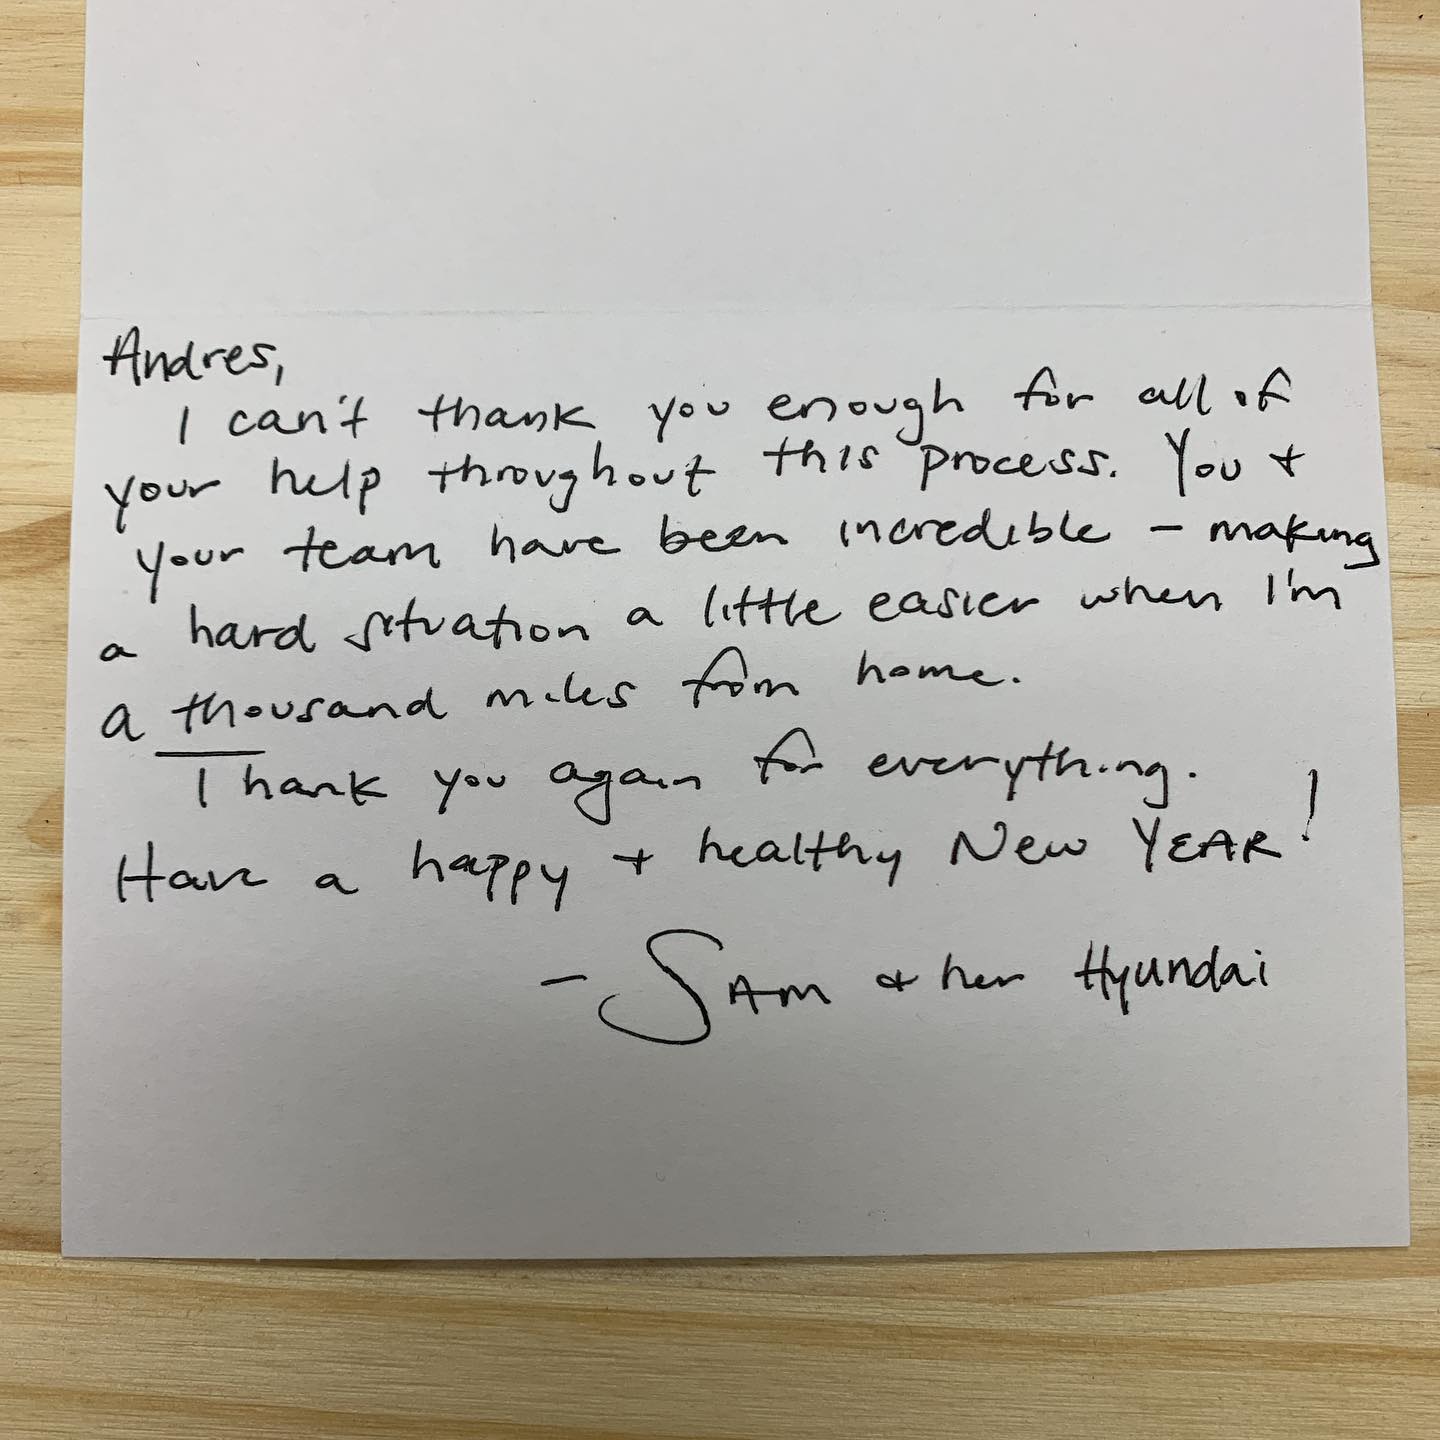 Andres,
I can't thank you enough for all of
your help throughout this process. You +
your team have been incredible - making
a hard situation a little easier when I'm
a thousand miles from home.
Thank you again for everything.
Have a happy + healthy New YEAR!
- SAM & her Hyundai